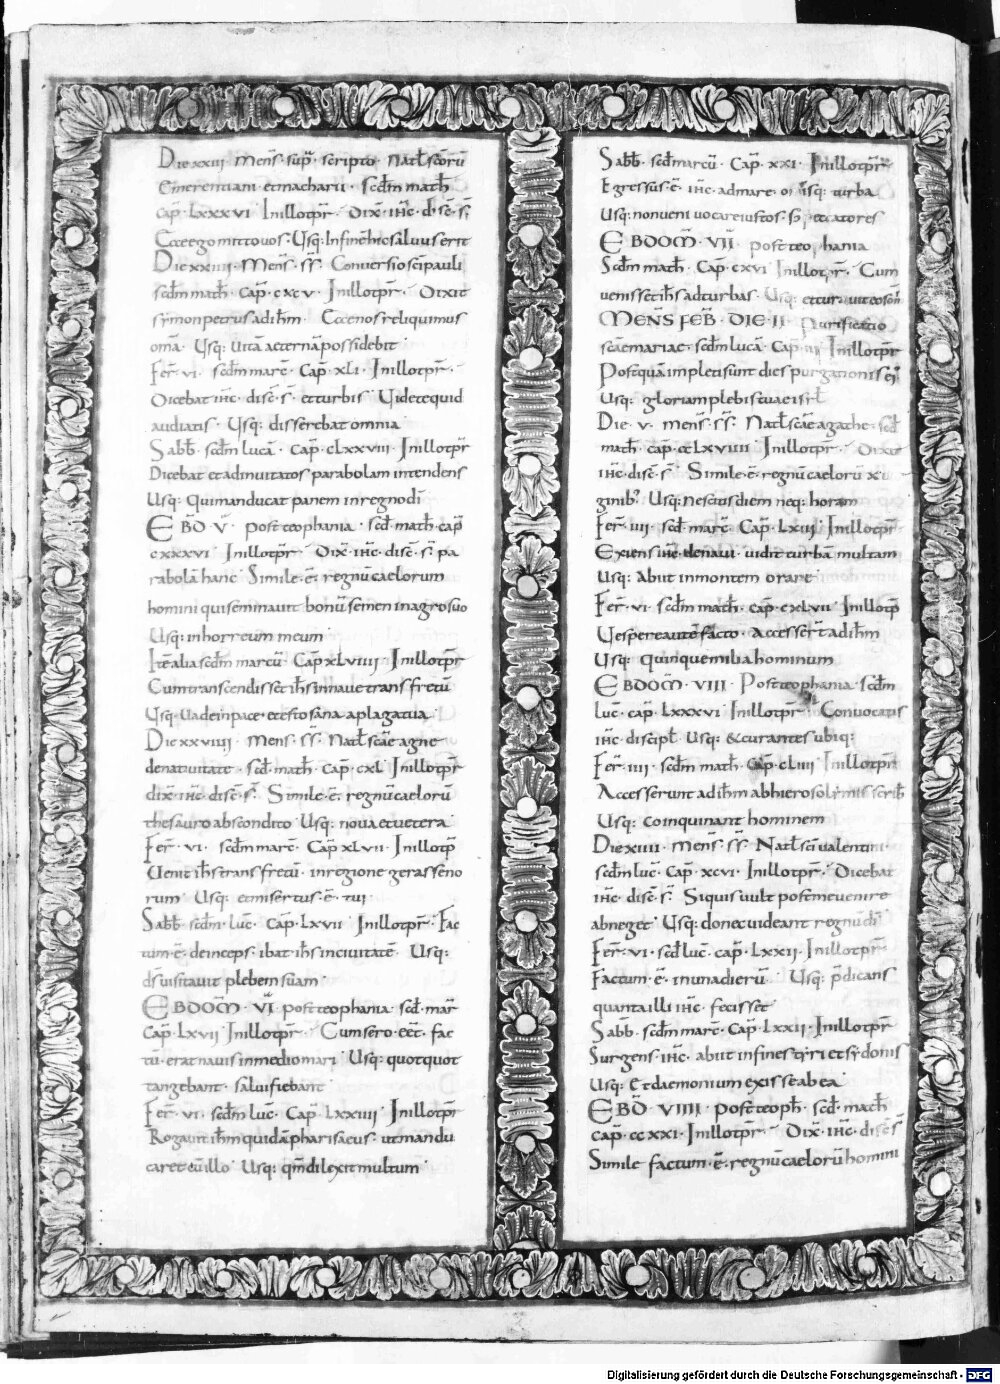 Die xxiii· mens̄· sup̄· scripto· Natł· sc̄orū
emerentiani· et macharii· scd̄m math̄
cap̄· Lxxxvi Inillotp̄r· Dix̄· ih̄c· dis̄c· s̄·
Ecce ego mitto vos· Usq: Infinē hic salvus erit
Die xxiiii· Mens̄· s̄s̄· Conversio sc̄i pauli
scd̄m math̄· cap̄· cxcv· Inillotp̄r· Dixit
symon petrus ad ih̄m· Ecce nos reliquimus
om̄a· Usq: vitā aeternā possidebit
Fer̄· vi· scd̄m marc̄· Cap̄· xli· Inillotp̄r·
Dicebat ih̄c· disc̄· s̄· et turbis· Videte quid
audiatis· Usq: disserebat omnia
Sabb̄· scd̄m lucā· cap̄· cLxxviii· Inillotp̄r
Dicebat et ad invitatos parabolam intendens
Usq: Qui manducat panem in regno dī
EBD̄· V̄· post teophania· scd̄· math̄· cap̄
cxxxvi· Inillotp̄r· Dix̄· ih̄c· disc̄· s̄· pa
rabolā hanc· Simile· ē· regnū caelorum
homini qui seminavit bonū semen in agro suo
Usq: in horreum meum
Itē alia scd̄m marcū· Cap̄ xLviiii· Inillotp̄r
Cum transcendisset ih̄s in nave trans fretū
Usq: vade in pace· et esto sana a plaga tua
Die xxviiii· Mens̄· s̄s̄· Natł· sc̄ae agne
de nativitate· scd̄· math̄· cap̄· cxL· Inillotp̄r
dix̄· ih̄c· disc̄· s̄· Simile· ē· regnū caelorū
thesauro abscondito· Usq: nova et vetera
Fer̄· vi· scd̄m marc̄· Cap̄ xLvii· Inillotp̄
Venit ih̄s trans fretū· in regione geraseno
rum· Usq: et misertus· ē· tui
Sabb̄· scd̄m· luc̄· Cap̄· Lxvii Inillotp̄r· Fac
tum· ē· deinceps· ibat ih̄s in civitatē· Usq:
ds̄ visitavit plebem suam
EBDOM̄· VI· post teophania· scd̄· mar̄
cap̄· Lxvii Inillotp̄r· Cum sero· eēt· fac
tū· erat navis in medio mari· Usq: quotquot
tangebant· salvi fiebant
Fer̄· vi· scd̄m luc̄· Cap̄· Lxxiiii· Inillotp̄r
Rogavit ih̄m quidā pharisaeus· ut mandu
caret cū illo· Usq: qm̄ dilexit multum
Sabb̄· scd̄ marcū· Cap̄· xxi· Inillotp̄r
Egressus· ē· ih̄c· ad mare· Usq: turba
Usq: non veni vocare iustos· s̄ peccatores
EBDOM̄· VII· post teophania
Scd̄m math̄· Cap̄· cxvi· Inillotp̄r· Cum
venisset ih̄s ad turbas· Usq:
MENS̄ FEB̄· DIE· II· Purificatio
sc̄ae mariae· scd̄m lucā· Cap̄· Inillotp̄r
Postquā impleti sunt dies purgationis ei'
Usq: gloriam plebis tuae isrł
Die· v· mens̄· s̄s̄· Natł sc̄ae agathe· scd̄
math̄· cap̄· ccLxviiii· Inillotp̄r· Dixit
ih̄c· disc̄· s̄· Simile· ē· regnū caelorū x
ginib'· Usq: nescitis diem neq: horam
Fer̄· iiii· scd̄· marc̄· Cap̄· Lxiii· Inillotp̄r
Exiens ih̄c· de navi· vidit turbā multam
Usq: abiit in montem orare
Fer̄· vi· scd̄m math̄· cap̄· cxLvii· Inillotp̄
Vespere autē facto· accesserūt ad ih̄m
Usq: Quinque milia hominum
EBDOM̄· VIII· Post teophania· scd̄m
luc̄· cap̄· Lxxxvi· Inillotp̄r· Convocatis
ih̄c· discipł· Usq: & curantes ubiq:
Fer̄· iiii· scd̄m math̄· Cap̄· cLiiii· Inillotp̄r
Accesserunt ad ih̄m ab hierosolymis scrib̄
Usq: coinquinant hominem
Die xiiii· mens̄· s̄s̄· Natł· sc̄i valentini·
scd̄m luc̄· Cap̄· xcvi· Inillotp̄r· Dicebat
ih̄c· disc̄· s̄· Si quis vult post me venire
abneget· Usq: donec videant regnū dī
Fer̄· vi· scd̄ luc̄· cap̄· Lxxii· Inillotp̄r
Factum· ē· in una dierū· Usq: p̄dicans
quanta illi ih̄c· fecisset
Sabb· scd̄m marc̄· Cap̄· Lxxii· Inillotp̄r
Surgens· ih̄c· abiit in fines tyri et sydonis
Usq: et daemonium exisse ab ea
EBD̄· VIIII· post teoph̄· scd̄· math̄
cap̄· ccxxi· Inillotp̄r· Dix̄· ih̄c· disc̄ s̄
Simile factum· ē· regnū caelorū homini
Digitalisierung gefördert durch die Deutsche Forschungsgemeinschaft - DFG